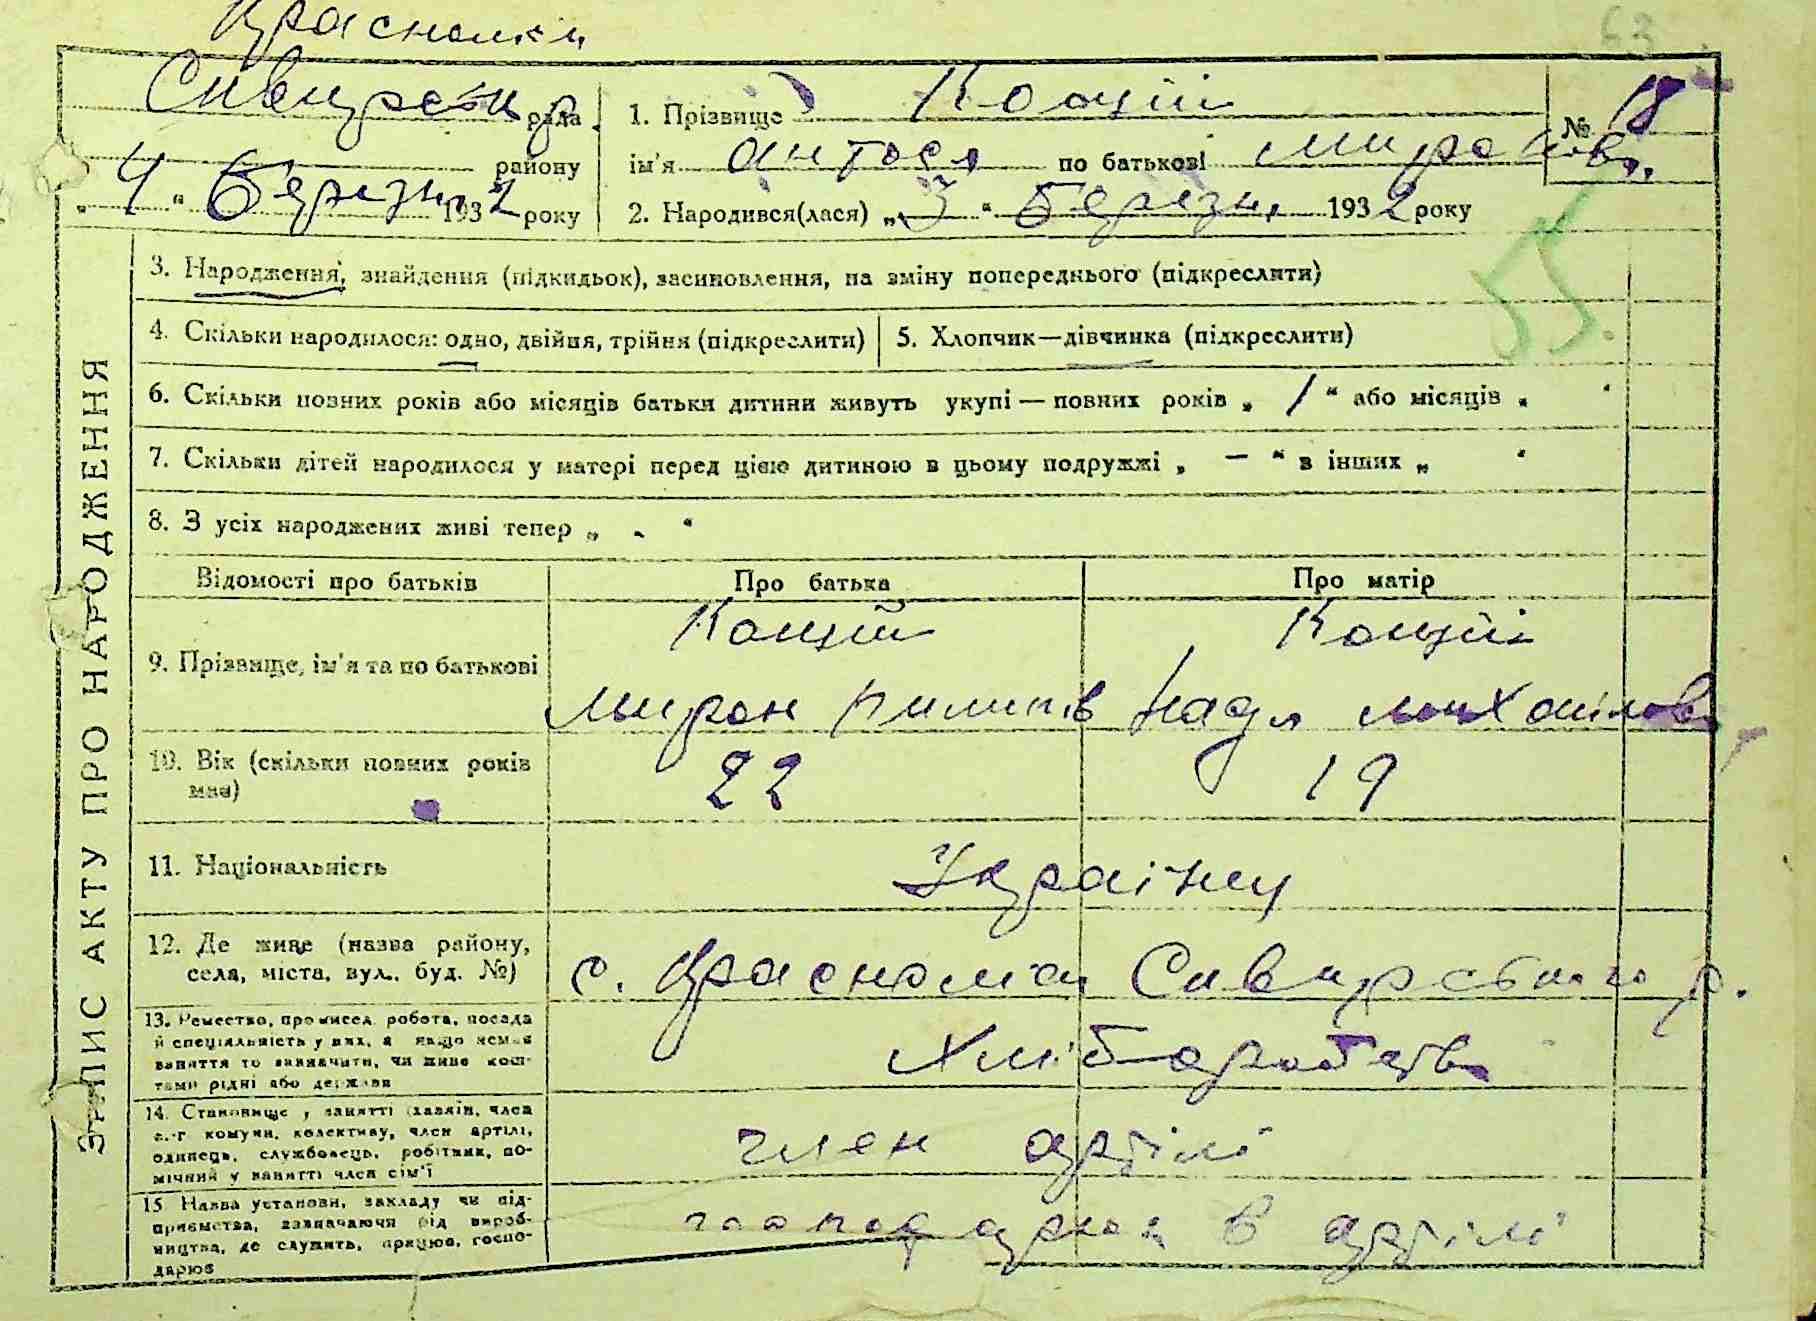 63
Красносілки
рада
1. Прізвище Коцій
№ 18
району
ім'я Антося по батькові Миронів.
„4“ Березня 1932 року
2. Народився(лася) „3“ Березня 1932 року
55.
ЗАПИС АКТУ ПРО НАРОДЖЕННЯ
3. Народження, знайдення (підкидьок), засиновлення, на зміну попереднього (підкреслити)
4. Скільки народилося: одно, двійня, трійня (підкреслити)
5. Хлопчик—дівчинка (підкреслити)
6. Скільки повних років або місяців батьки дитини живуть укупі — повних років „ 1 “ або місяців „ “
7. Скільки дітей народилося у матері перед цією дитиною в цьому подружжі „ — “ в інших „ “
8. З усіх народжених живі тепер „ - “
Відомості про батьків
Про батька
Про матір
9. Прізвище, ім'я та по батькові
Коцій
Коцій
Мирон Пилипів
Надя Михайлова
10. Вік (скільки повних років
має)
22
19
11. Національність
Українці
12. Де живе (назва району,
села, міста, вул., буд. №)
с.
р.
13. Ремество, промисел, робота, посада
й спеціяльність у них, а якщо немає
заняття то зазначити, чи живе кош-
тами рідні або держави
Хліборобство
14. Становище у занятті (хазяїн, член
с.-г комуни, колективу, член артілі,
одинець, службовець, робітник, по-
мічний у занятті член сім'ї
член артілі
15. Назва установи, закладу чи під-
приємства, зазначаючи рід вироб-
ництва, де служить, працює, госпо-
дарює
в артілі